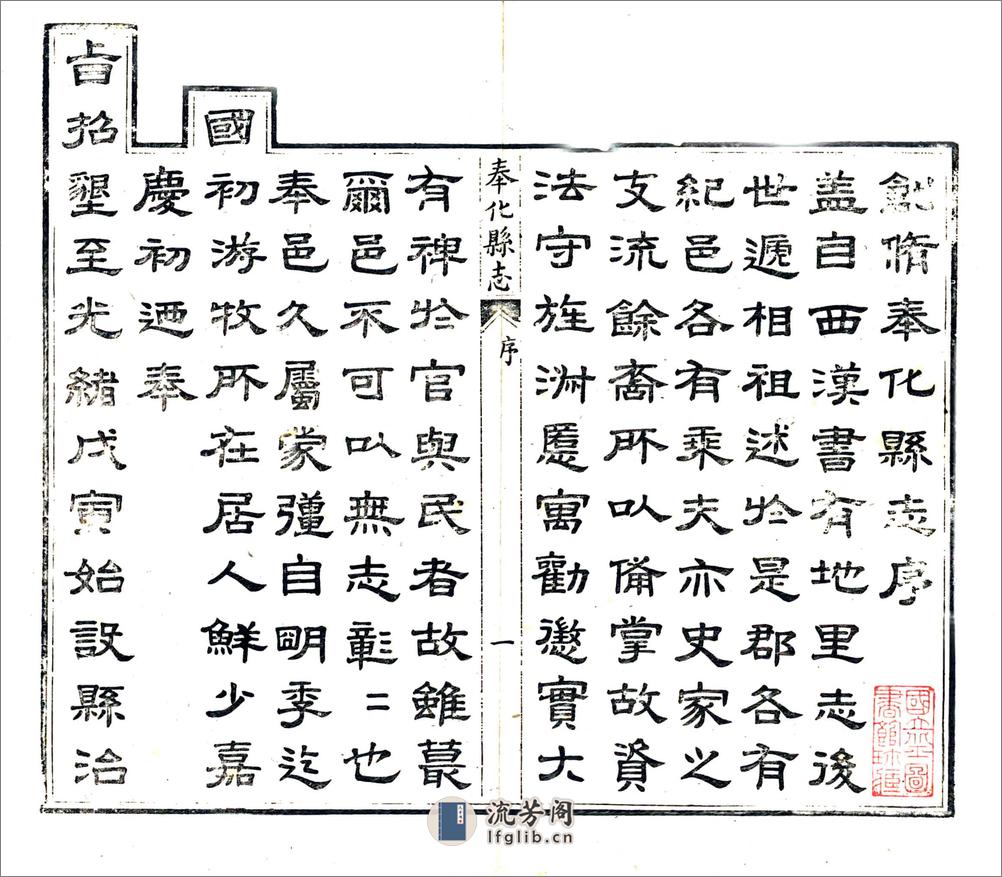 創脩奉化縣志序
蓋自西漢書有地里志後
世遞相祖述扵是郡各有
紀邑各有乘夫亦史家之
支流餘裔所以備掌故資
法守旌淑慝寓勸懲實大
奉化縣志
序
一
有裨扵官與民者故雖蕞
爾邑不可以無志彰二也
奉邑久屬蒙彊自明季迄
國
初游牧所在居人鮮少嘉
慶初迺奉
旨招
墾至光緒戊寅始設縣治
國立圖
書館珍藏
流芳阁
lfglib.cn